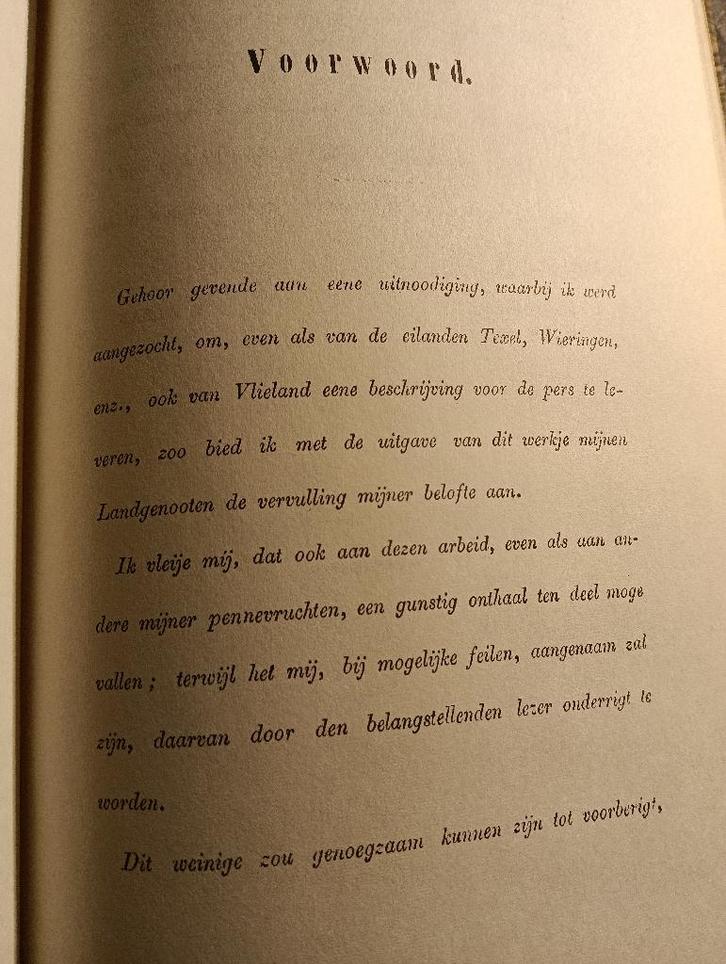 Voorwoord.
Gehoor gevende aan eene uitnoodiging, waarbij ik werd
aangezocht, om, even als van de eilanden Texel, Wieringen,
enz., ook van Vlieland eene beschrijving voor de pers te le-
veren, zoo bied ik met de uitgave van dit werkje mijnen
Landgenooten de vervulling mijner belofte aan.
Ik vleije mij, dat ook aan dezen arbeid, even als aan an-
dere mijner pennevruchten, een gunstig onthaal ten deel moge
vallen; terwijl het mij, bij mogelijke feilen, aangenaam zal
zijn, daarvan door den belangstellenden lezer onderrigt te
worden.
Dit weinige zou genoegzaam kunnen zijn tot voorberigt,